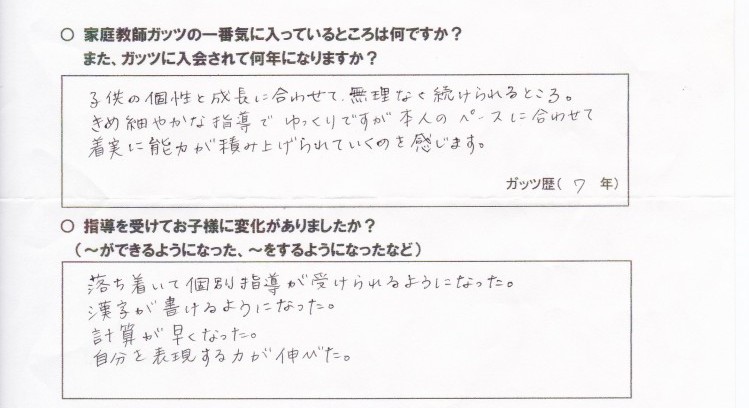 ○ 家庭教師ガッツの一番気に入っているところは何ですか？
また、ガッツに入会されて何年になりますか？
子供の個性と成長に合わせて、無理なく続けられるところ。
きめ細やかな指導でゆっくりですが本人のペースに合わせて
着実に能力が積み上げられていくのを感じます。
ガッツ歴（ 7 年）
○ 指導を受けてお子様に変化がありましたか？
（～ができるようになった、～をするようになったなど）
落ち着いて個別指導が受けられるようになった。
漢字が書けるようになった。
計算が早くなった。
自分を表現する力が伸びた。